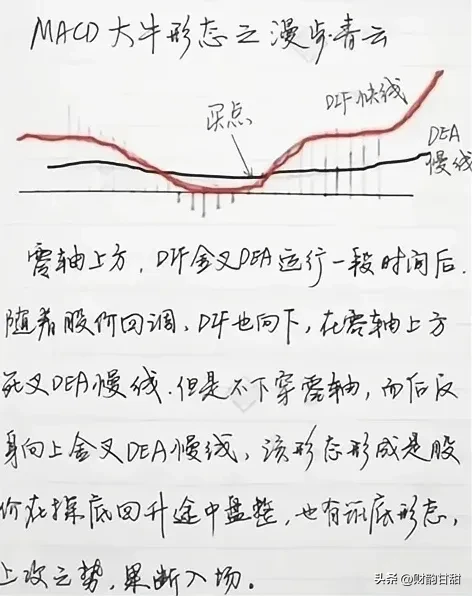 MACD大牛形态之漫步青云
买点
DIF快线
DEA
慢线
零轴上方，DIF金叉DEA运行一段时间后.
随着股价回调、DIF也向下，在零轴上方
死叉DEA慢线.但是不下穿零轴，而后反
身向上金叉DEA慢线，该形态形成是股
价在探底回升途中盘整，也有筑底形态，
上攻之势，果断入场。
头条 @财韵甘甜